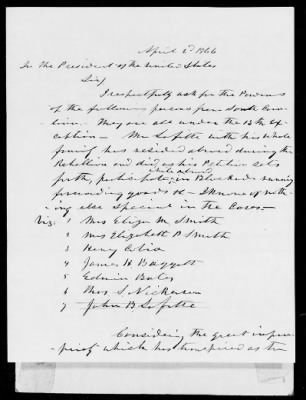 April 2d 1866
To the President of the United States
Sir
I respectfully ask for the Pardons
of the following persons from South Caro-
lina. They are all under the 13th Ex-
ception — Mr Lafitte with his whole
family has resided abroad during the
Rebellion and did as his Petition sets
forth, participate in Blockade running
furnishing goods &c — I know of noth-
ing else Special in the Cases —
Viz: 1 Mrs Eliza M Smith
2 Mrs Elizabeth P Smith
3 Henry
4 James H Baggett
5 Edwin Bates
6 Thos S Nickerson
7 John B Lafitte
Considering the great
which has transpired as the